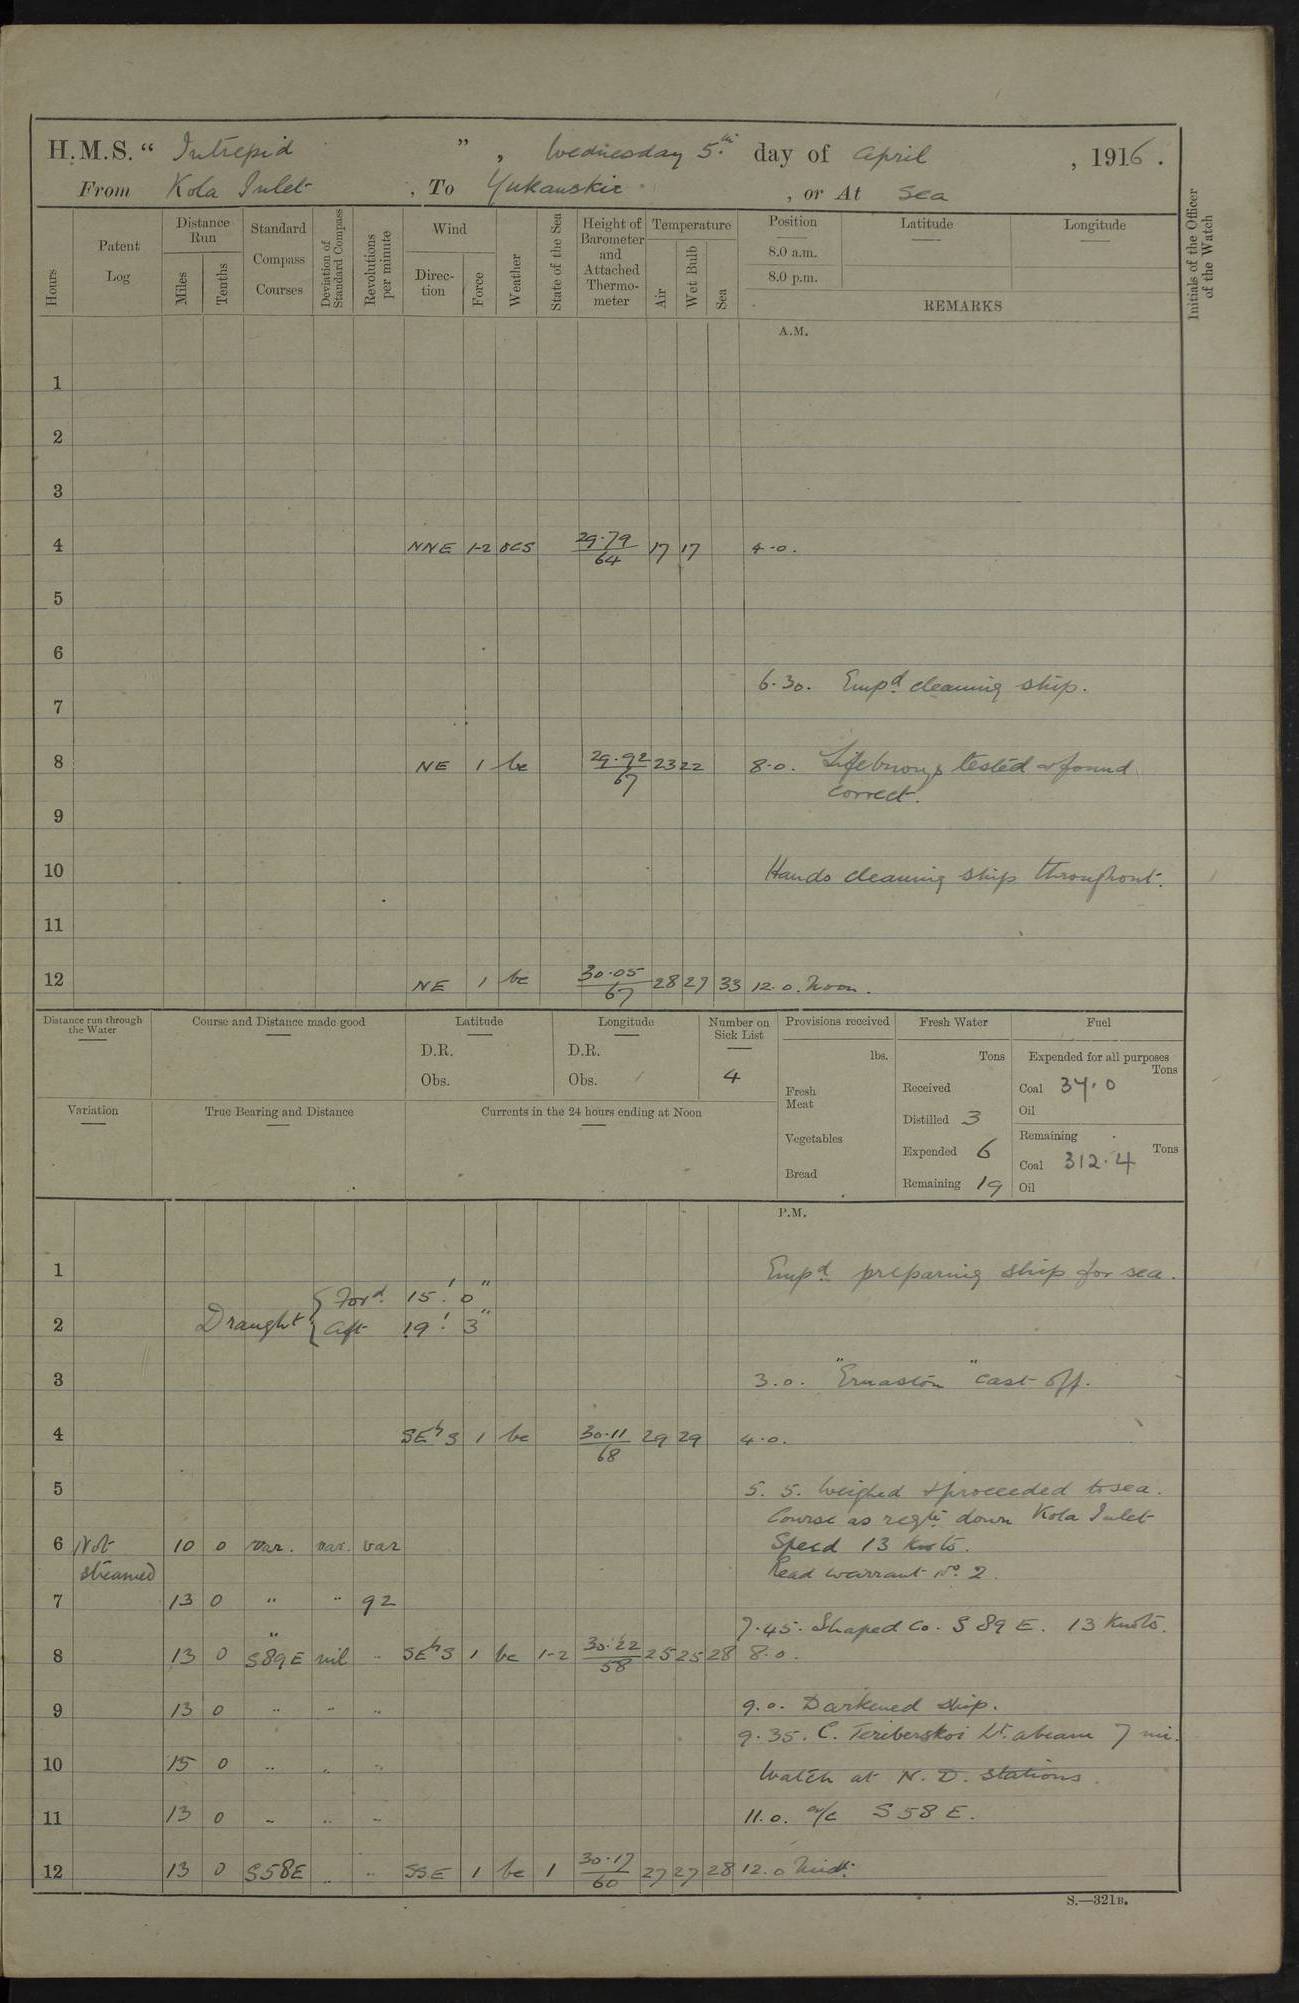 H.M.S. “ Intrepid ” , Wednesday 5.th day of April , 1916 .
From Kola Inlet , To Yukanskie , or At Sea
Hours
Patent Log
Distance Run
Miles
Tenths
Standard Compass Courses
Deviation of Standard Compass
Revolutions per minute
Wind
Direc- tion
Force
Weather
State of the Sea
Height of Barometer and Attached Thermo- meter
Temperature
Air
Wet Bulb
Sea
Position
8.0 a.m.
8.0 p.m.
Latitude
Longitude
REMARKS
Initials of the Officer of the Watch
A.M.
1
2
3
4 NNE 1-2 ocs 29.79 64 17 17 4.0.
5
6
6.30. Empd. cleaning ship.
7
8 NE 1 bc 29.92 67 23 22 8.0. Lifebuoys tested & found
correct.
9
10 Hands cleaning ship throughout.
11
12 NE 1 bc 30.05 67 28 27 33 12.0. Noon.
Distance run through the Water
Course and Distance made good
Latitude
D.R.
Obs.
Longitude
D.R.
Obs.
Number on Sick List
4
Provisions received
lbs.
Fresh Meat
Vegetables
Bread
Fresh Water
Tons
Received
Distilled 3
Expended 6
Remaining 19
Fuel
Expended for all purposes
Tons
Coal 37.0
Oil
Remaining
Tons
Coal 312.4
Oil
Variation
True Bearing and Distance
Currents in the 24 hours ending at Noon
P.M.
1 Empd. preparing ship for sea.
Draught { Ford. 15' 0"
2 Aft 19' 3"
3 3.0. "Ermaston" cast off.
4 SEbS 1 bc 30.11 68 29 29 4.0.
5 5. 5. Weighed & proceeded to sea.
Course as reqte. down Kola Inlet
6 Not 10 0 var. var. var Speed 13 Knots.
steamed Read warrant No. 2.
7 13 0 " " 92
7.45. Shaped Co. S 89 E. 13 Knots.
8 13 0 " S89E nil " SEbS 1 bc 1-2 30.22 58 25 25 28 8.0.
9 13 0 " " " 9.0. Darkened ship.
9.35. C. Teriberskoi Lt. abeam 7 mi.
10 15 0 " " " Watch at N. D. Stations.
11 13 0 " " " 11.0. a/c S 58 E.
12 13 0 S58E " " SSE 1 bc 1 30.17 60 27 27 28 12.0 Midt.
S.—321B.